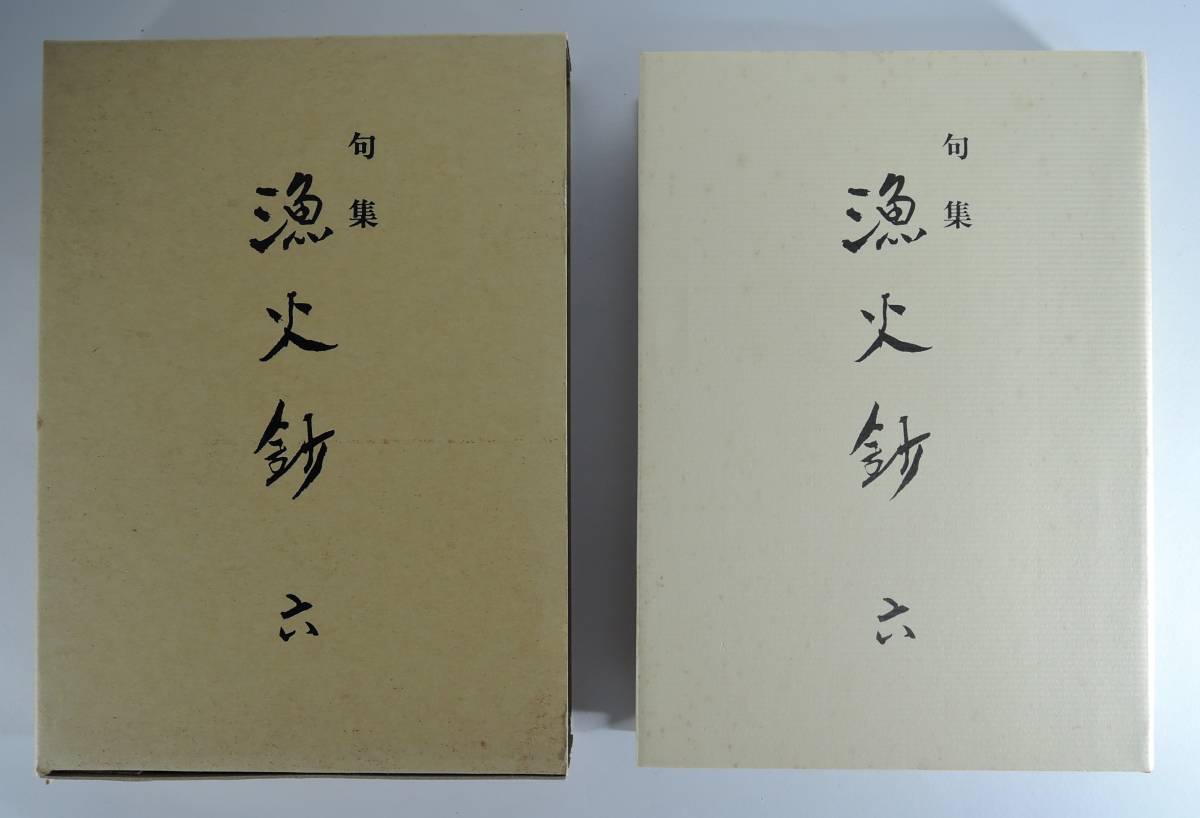 句集
漁火鈔
六
句集
漁火鈔
六